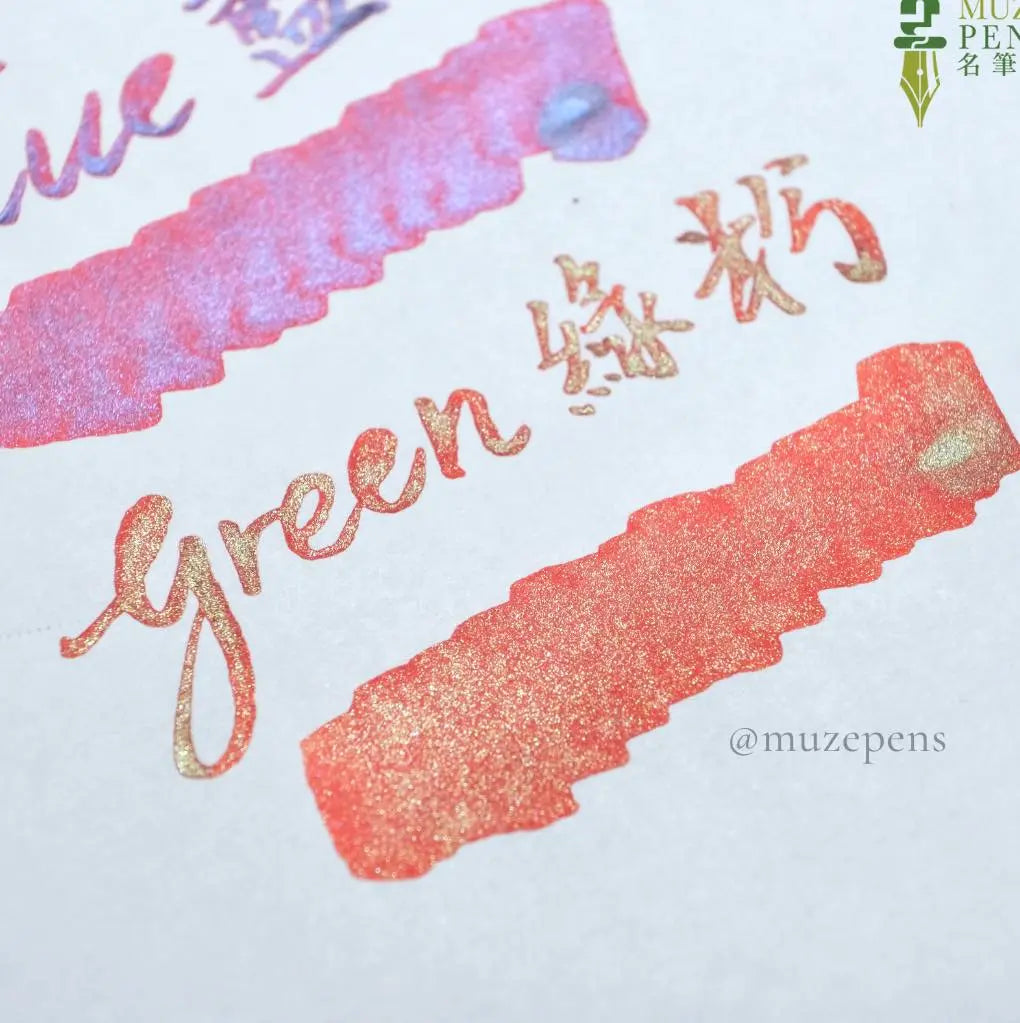 MUZ
PEN
名筆
ue
green 綠粉
@muzepens